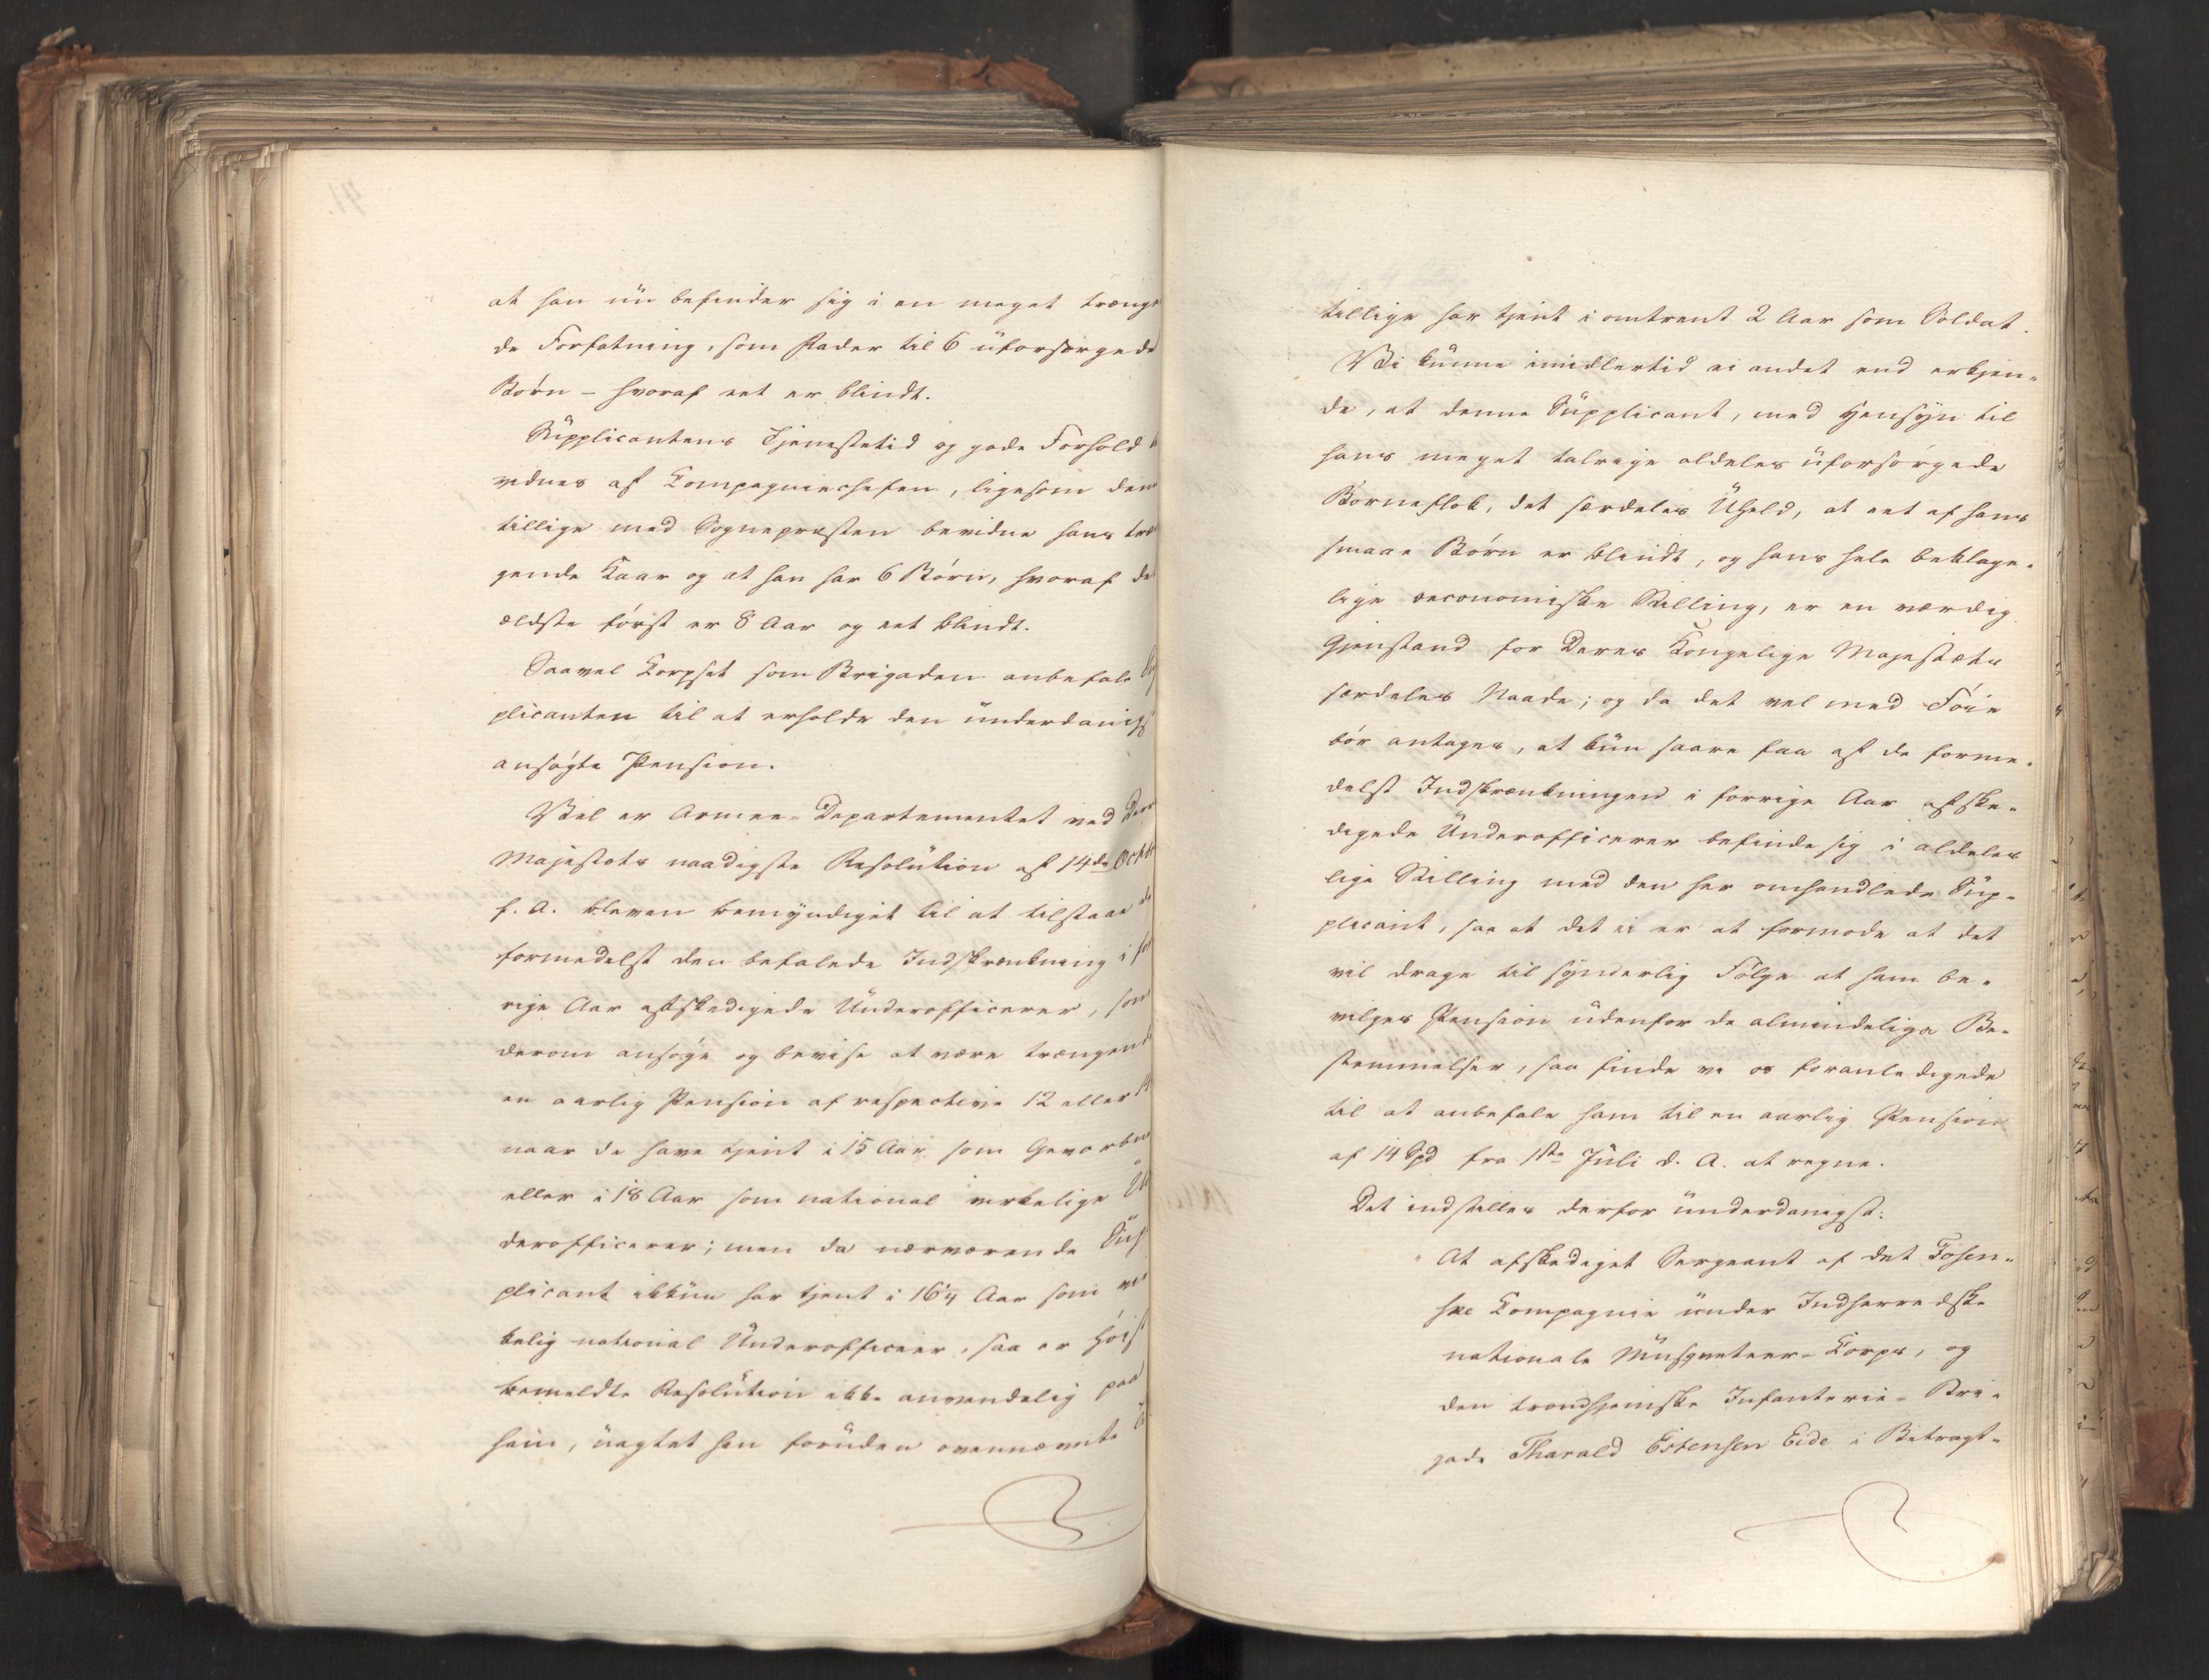 at han nu befinder sig i en meget trænge
de Forfatning, som Fader til 6 uforsørgede
Børn – hvoraf eet er blindt.
Supplicantens Tjenestetid og gode Forhold
vidnes af Compagniechefen, ligesom den
tillige med Sognepræsten bevidne hans træ
gende Kaar og at han har 6 Børn, hvoraf de
ældste først er 8 Aar og eet blindt.
Saavel Corpset som Brigaden anbefale
plicanten til at erholde den underdanigst
ansøgte Pension.
Vel er Armee-Departementet ved Der
Majestæts naadigste Resolution af 14de Octb
f. A. bleven bemyndiget til at tilstaae de
formedelst den befalede Indskrænkning i for
rige Aar afskedigede Underofficerer, som
derom ansøge og bevise at være trængend
en aarlig Pension af respective 12 eller 14
naar de have tjent i 15 Aar som Gevorbne
eller i 18 Aar som national virkelige Un
derofficerer; men da nærværende Sup
plicant ikkun har tjent i 16 1/4 Aar som vir
kelig national Underofficeer, saa er Høist
bemeldte Resolution ikke anvendelig paa
ham, uagtet han foruden ovennævnte
tillige har tjent i omtrent 2 Aar som Soldat.
Vi kunne imidlertid ei andet end erkjen-
de, at denne Supplicant, med Hensyn til
hans meget talrige aldeles uforsørgede
Børneflok, det særdeles Uheld, at eet af hans
smaae Børn er blindt, og hans hele beklage-
lige oeconomiske Stilling, er en værdig
Gjenstand for Deres Kongelige Majestæts
særdeles Naade; og da det vel med Føie
bør antages, at kun saare faa af de forme-
delst Indskrænkningen i forrige Aar afske-
digede Underofficerer befinde sig i aldeles
lige Stilling med den her omhandlede Sup-
plicant, saa at det ei er at formode at det
vil drage til synderlig Følge at ham be-
vilges Pension udenfor de almindelige Be-
stemmelser, saa finde vi os foranledigede
til at anbefale ham til en aarlig Pension
af 14 Spd fra 1ste Juli d. A. at regne.
Det indstilles derfor underdanigst:
At afskediget Sergeant af det Fosen-
ske Compagnie under Indherredske
nationale Musqueteer-Corps, og
den trondhjemske Infanterie-Bri-
gade Tharald Estensen Eide i Betragt-